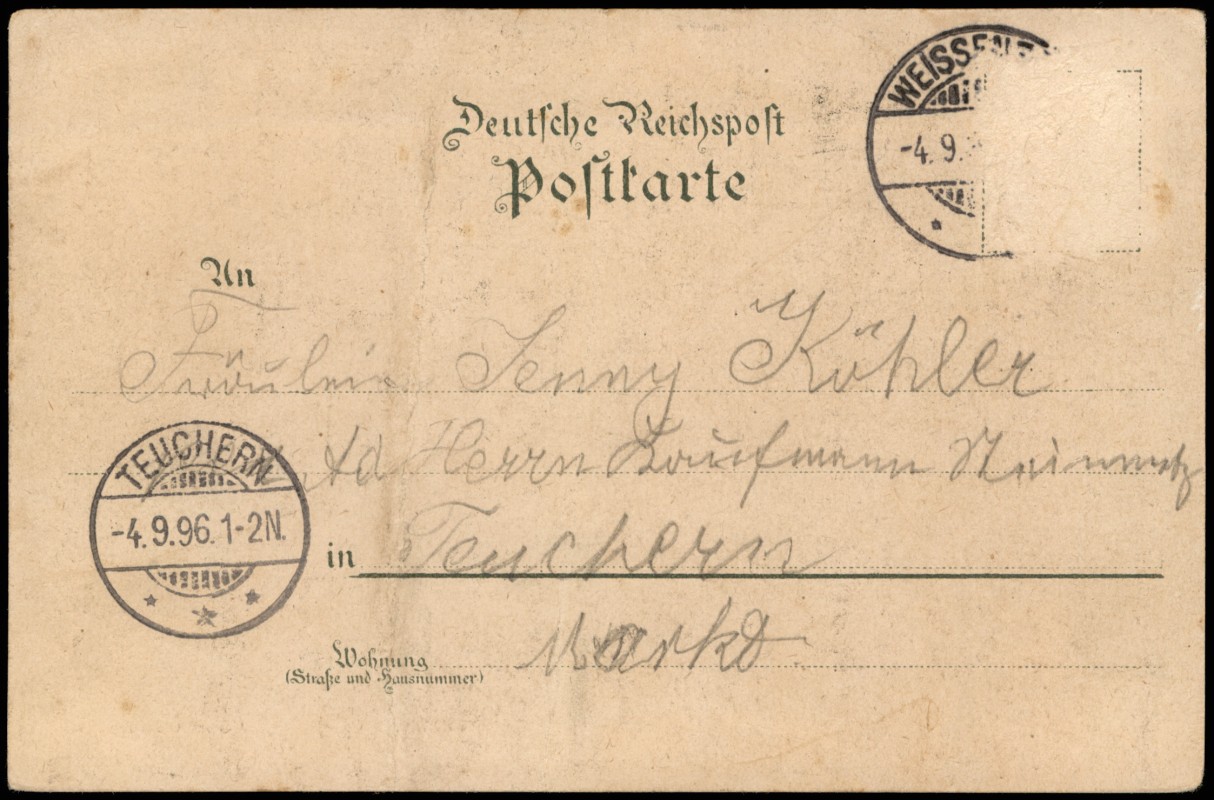 WEISSEN
-4.9.
Deutsche Reichspost
Postkarte
An
Fräulein Jenny Köhler
Herrn Kaufmann
TEUCHERN
-4.9.96.1-2N.
in Teuchern
Markt
Wohnung
(Straße und Hausnummer)